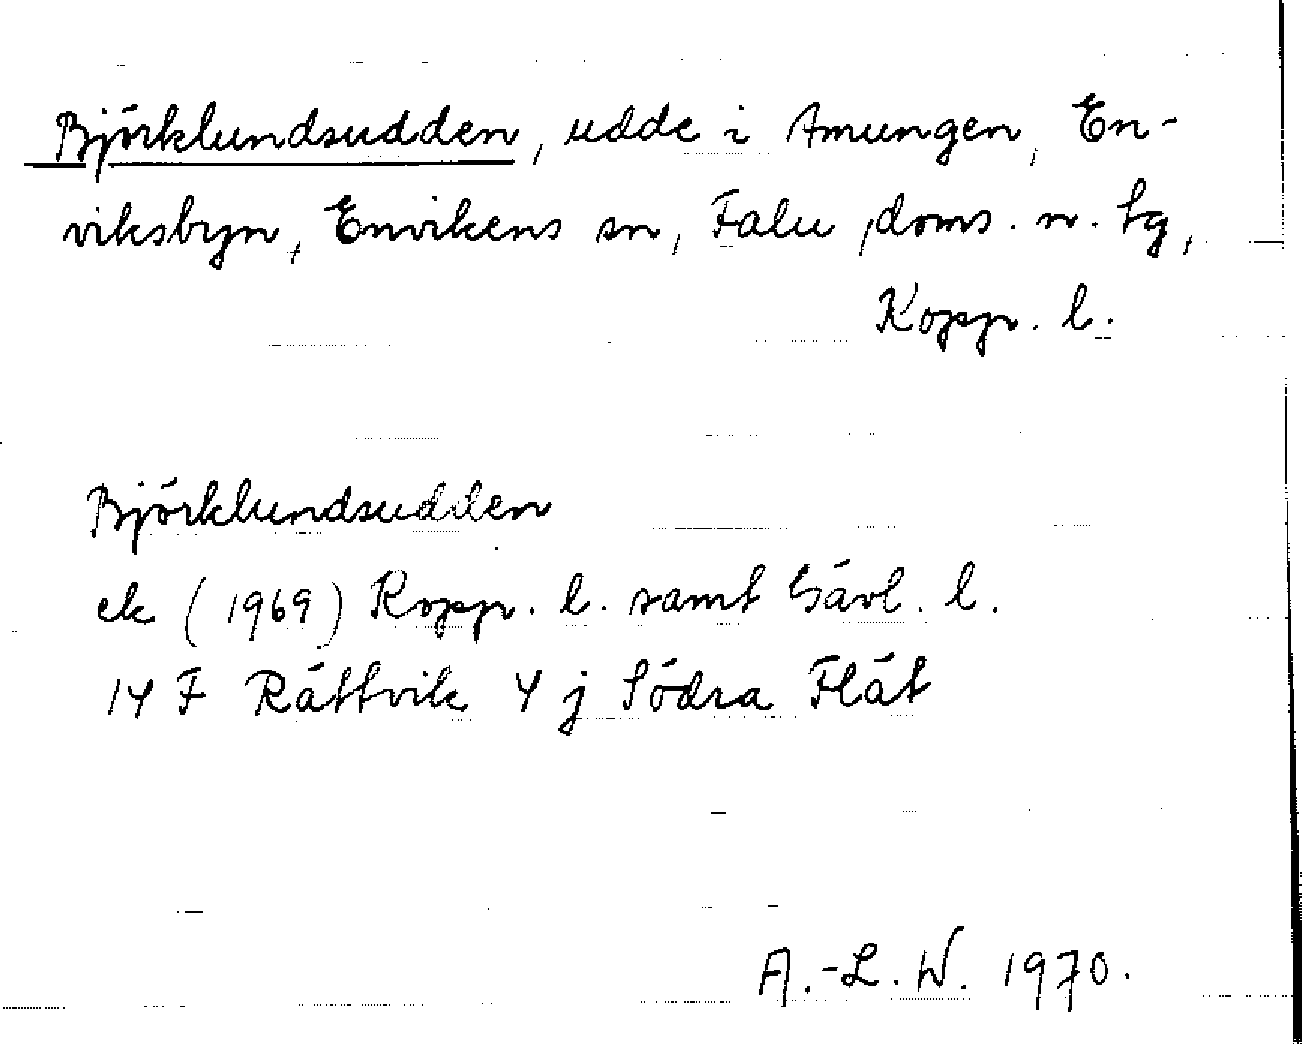 Björklundsudden, udde i Amungen, En-
viksbyn, Envikens sn, Falu doms. n. tg,
Kopp. l.
Björklundsudden
ek (1969) Kopp. l. samt Gävl. l.
14 F Rättvik 4 j Södra Flät
A.-L. W. 1970.